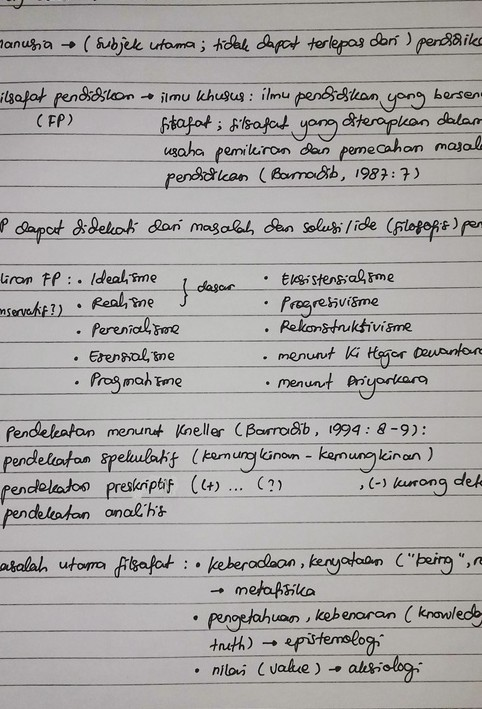 manusia → (subjek utama; tidak dapat terlepas dari) pendidika
ilsafat pendidikan → ilmu khusus: ilmu pendidikan yang bersen
(FP) filsafat; filsafat yang diterapkan dalam
usaha pemikiran dan pemecahan masal
pendidikan (Barnadib, 1987: 7)
P dapat didekati dari masalah dan solusi/ide (filosofis) pen
liran FP: • Idealisme } dasar • Eksistensialisme
nservatif?) • Realisme • Progresivisme
• Perenialisme • Rekonstruktivisme
• Esensialisme • menurut Ki Hajar Dewantara
• Pragmatisme • menurut Driyarkara
Pendekatan menurut Kneller (Barnadib, 1994: 8-9):
pendekatan spekulatif (kemungkinan-kemungkinan)
pendekatan preskriptif ((+) ... (?) , (-) kurang det
pendekatan analitis
asalah utama filsafat: • keberadaan, kenyataan ("being", r
→ metafisika
• pengetahuan, kebenaran (knowledg
truth) → epistemologi
• nilai (value) → aksiologi